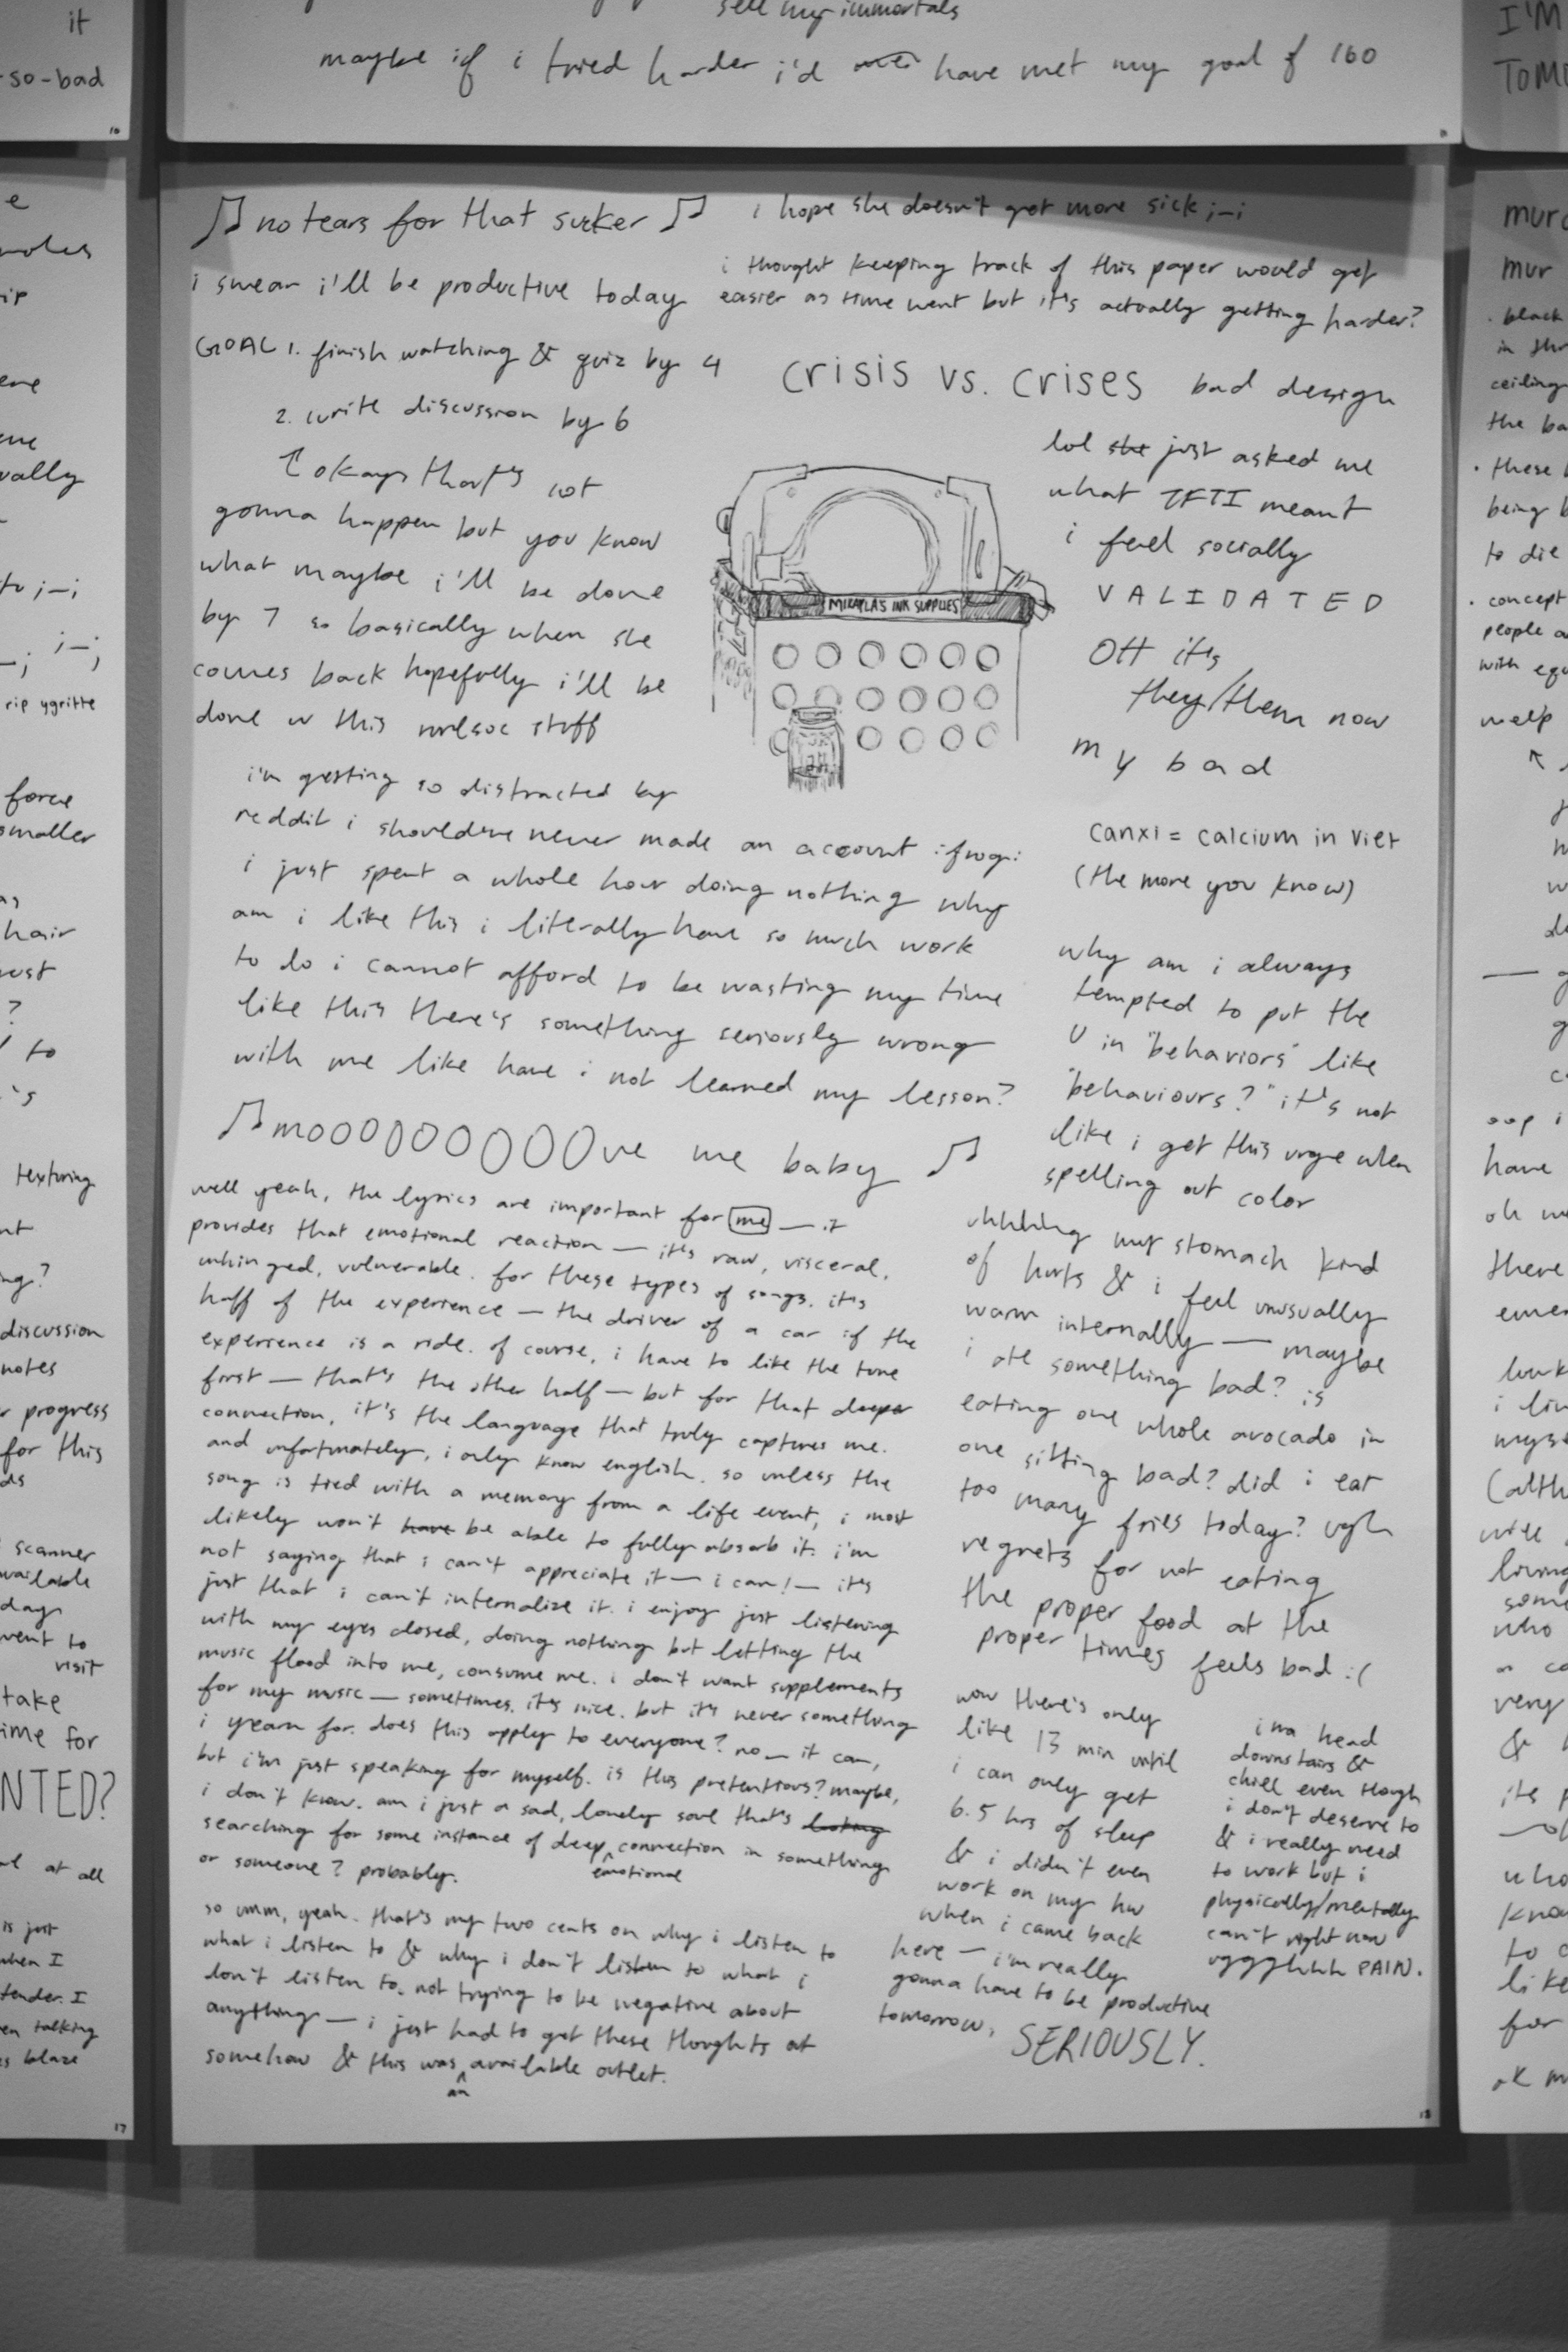 sell my immortals
maybe if i tried harder i'd have met my goal of 160
♫ no tears for that sucker ♫
i swear i'll be productive today
GOAL 1. finish watching & quiz by 4
2. write discussion by 6
↑ okay that's not
gonna happen but you know
what maybe i'll be done
by 7 so basically when she
comes back hopefully i'll be
done w this stuff
i hope she doesn't get more sick ;-;
i thought keeping track of this paper would get
easier as time went but it's actually getting harder?
crisis vs. crises bad design
MIKAYLA'S INK SUPPLIES
lol she just asked me
what TFTI meant
i feel socially
VALIDATED
OH it's
they/them now
my bad
canxi = calcium in viet
(the more you know)
i'm getting so distracted by
reddit i should've never made an account :frog:
i just spent a whole hour doing nothing why
am i like this i literally have so much work
to do i cannot afford to be wasting my time
like this there's something seriously wrong
with me like have i not learned my lesson?
why am i always
tempted to put the
U in "behaviors" like
"behaviours?" it's not
like i get this urge when
spelling out color
♫ mooooooooove me baby ♫
well yeah, the lyrics are important for me — it
provides that emotional reaction — it's raw, visceral,
unhinged, vulnerable. for these types of songs, it's
half of the experience — the driver of a car if the
experience is a ride. of course, i have to like the tune
first — that's the other half — but for that deeper
connection, it's the language that truly captures me.
and unfortunately, i only know english. so unless the
song is tied with a memory from a life event, i most
likely won't have be able to fully absorb it. i'm
not saying that i can't appreciate it — i can! — it's
just that i can't internalize it. i enjoy just listening
with my eyes closed, doing nothing but letting the
music flood into me, consume me. i don't want supplements
for my music — sometimes, it's nice. but it's never something
i yearn for. does this apply to everyone? no — it can,
but i'm just speaking for myself. is this pretentious? maybe,
i don't know. am i just a sad, lonely soul that's looking
searching for some instance of deep emotional connection in something
or someone? probably.
so umm, yeah. that's my two cents on why i listen to
what i listen to & why i don't listen to what i
don't listen to. not trying to be negative about
anything — i just had to get these thoughts at
somehow & this was an available outlet.
uhhhhg my stomach kind
of hurts & i feel unusually
warm internally — maybe
i ate something bad? is
eating one whole avocado in
one sitting bad? did i eat
too many fries today? ugh
regrets for not eating
the proper food at the
proper times feels bad :(
now there's only
like 13 min until
i can only get
6.5 hrs of sleep
& i didn't even
work on my hw
when i came back
here — i'm really
gonna have to be productive
tomorrow, SERIOUSLY.
ima head
downstairs &
chill even though
i don't deserve to
& i really need
to work but i
physically/mentally
can't right now
uggghhh PAIN.
18
it
-so-bad
rip ygritte
force
smaller
hair
texturing
discussion
notes
progress
for this
scanner
available
day
went to
visit
take
time for
at all
is just
when I
talking
17
I'M
black
ceiling
the
these
being
to die
concept
people
with
welp
oop i
have
there